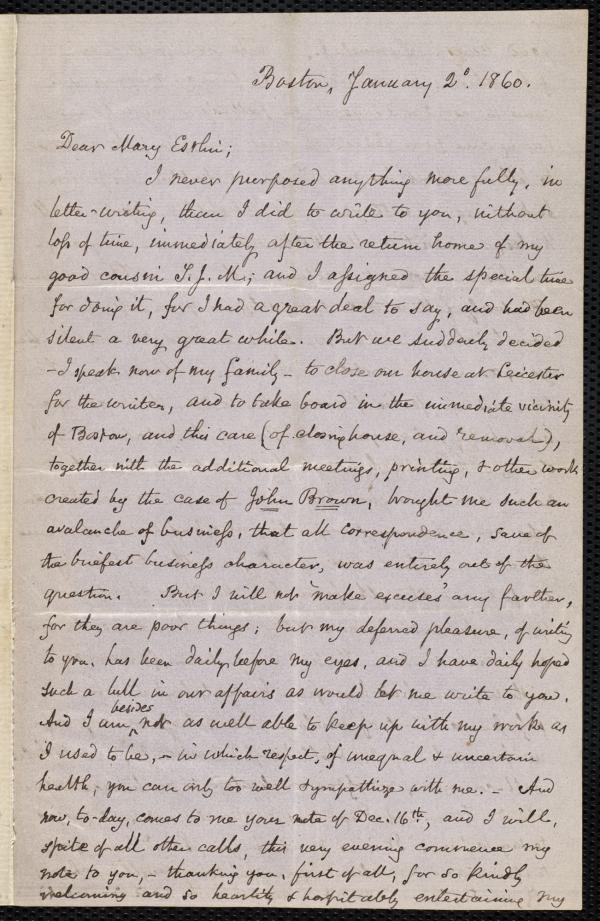 Boston, January 2d. 1860.
Dear Mary Estlin;
I never purposed anything more fully, in
letter-writing, than I did to write to you, without
loss of time, immediately after the return home of my
good cousin S. J. M.; and I assigned the special time
for doing it, for I had a great deal to say, and had been
silent a very great while. But we suddenly decided
- I speak now of my family - to close our house at Leicester
for the winter, and to take board in the immediate vicinity
of Boston, and this care (of closing house, and removal),
together with the additional meetings, printing, & other work
created by the case of John Brown, brought me such an
avalanche of business, that all correspondence, save of
the briefest business character, was entirely out of the
question. But I will not 'make excuses' any farther,
for they are poor things; but my deferred pleasure, of writing
to you, has been daily before my eyes, and I have daily hoped
such a lull in our affairs as would let me write to you.
And I am besides not as well able to keep up with my work as
I used to be, - in which respect, of unequal & uncertain
health, you can only too well sympathize with me. - And
now, to-day, comes to me your note of Dec. 16th, and I will,
spite of all other calls, this very evening commence my
note to you, - thanking you, first of all, for so kindly
welcoming and so heartily & hospitably entertaining my